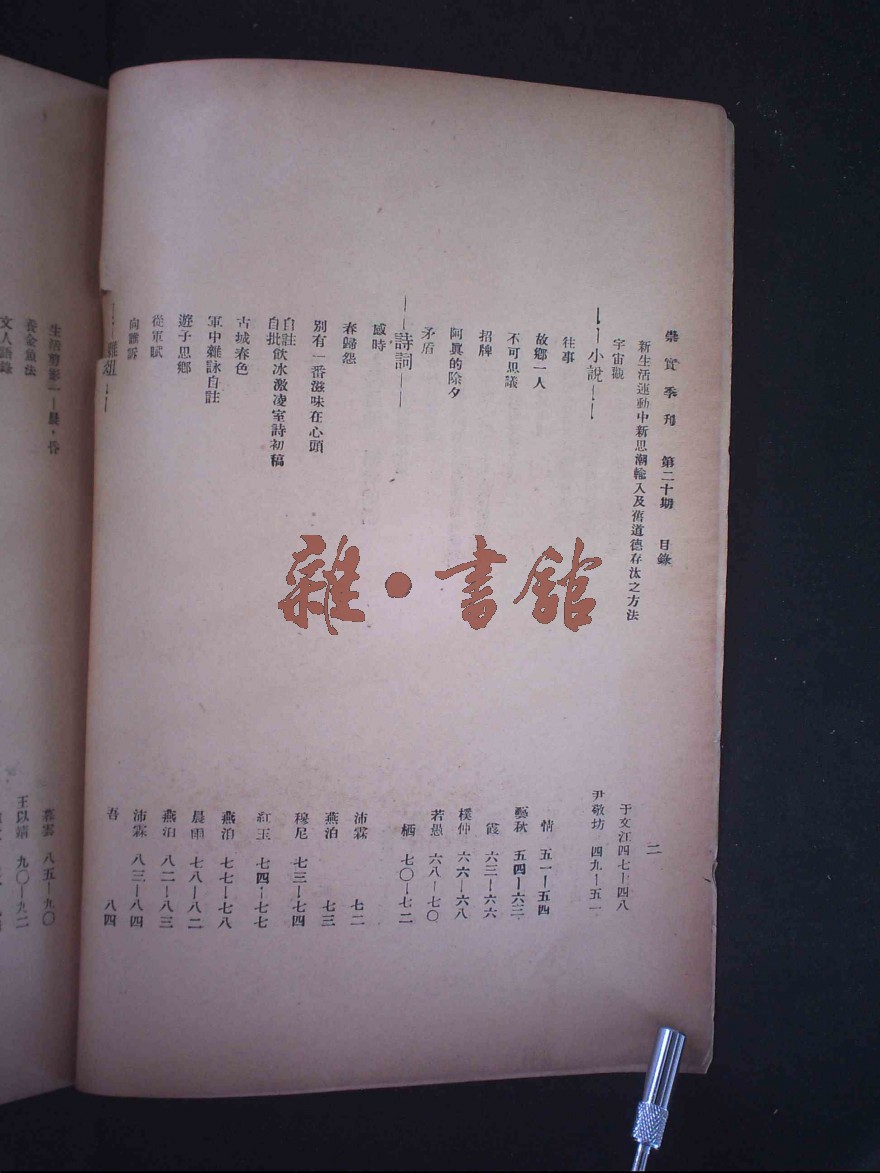 崇實季刊 第二十期 目錄 二
新生活運動中新思潮輸入及舊道德存汰之方法 于文江 四七—四八
宇宙觀 尹敬坊 四九—五一
—小說—
往事 情 五一—五四
故鄉一人 藝秋 五四—六三
不可思議 霞 六三—六六
招牌 樸仲 六六—六八
阿眞的除夕 若愚 六八—七〇
矛盾 栖 七〇—七二
—詩詞—
感時 沛霖 七二
春歸怨 燕泊 七三
別有一番滋味在心頭 穆尼 七三—七四
自註自批飲冰激凌室詩初稿 紅玉 七四—七七
古城春色 燕泊 七七—七八
軍中雜詠自註 晨雨 七八—八二
遊子思鄉 燕泊 八二—八三
從軍賦 沛霖 八三—八四
向誰訴 吾 八四
—雜俎—
生活剪影—晨·昏 雲 八五—九〇
養金魚法 王以 九〇—九二
文人語錄
雜·書館